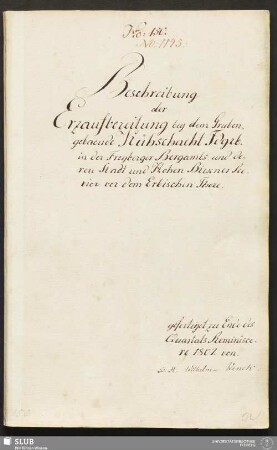 No: 150.
No. 1193.
Beschreibung
der
Erzaufbereitung bey dem Gruben-
gebaeude Kühschacht Fdgrb.
in der Freyberger Bergamts und de-
ren Stadt und Hohen Birkner Re-
vier vor dem Erbischen Thore.
gefertiget zu Ende des
Quartals Reminisce-
re 1801. von
Wilhelm
SLUB